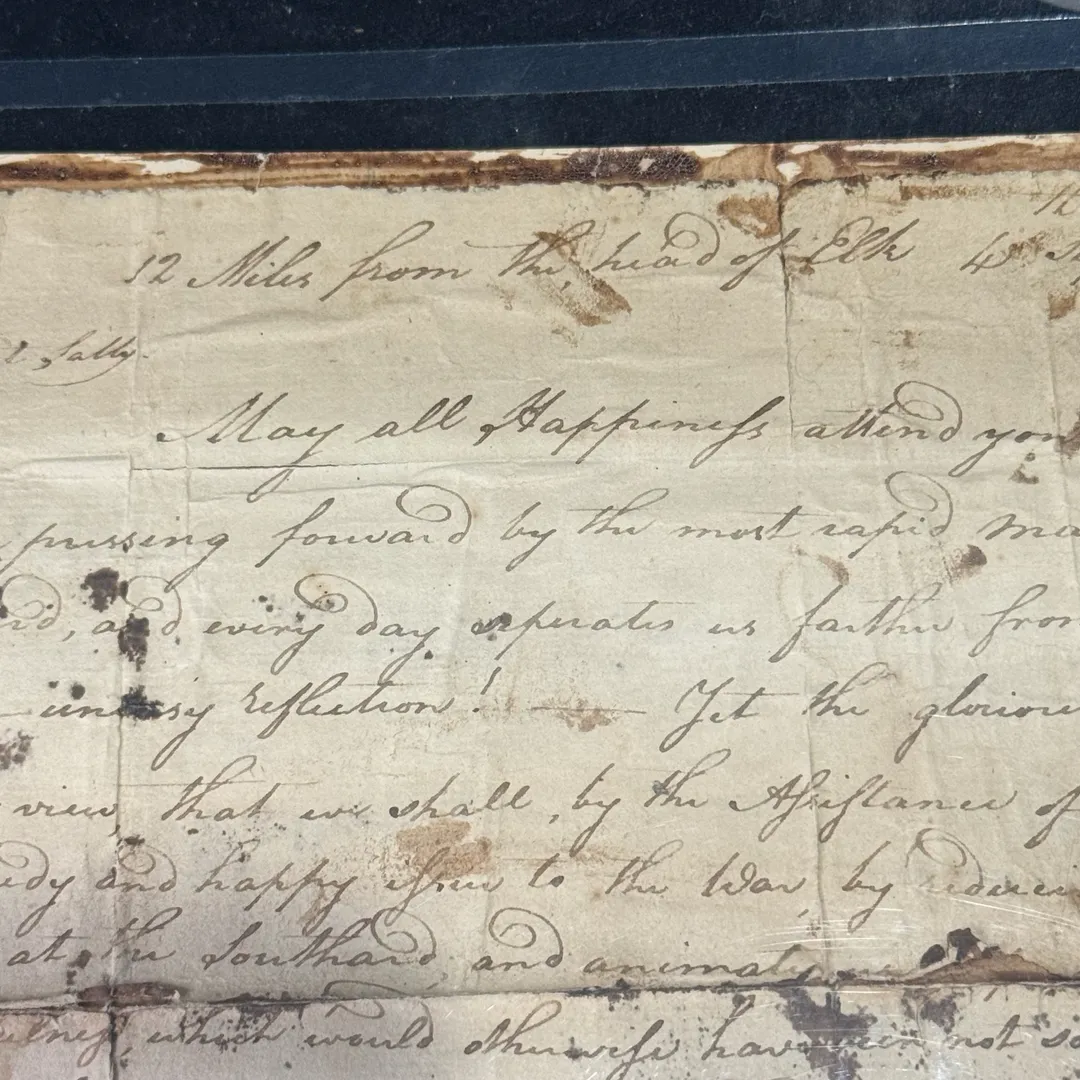 12 Miles from the head of Elk 4
Sally.
May all Happiness attend you
pressing forward by the most rapid
and every day seperates us farther from
uneasy reflection! — Yet the gloriou
view, that we shall, by the Assistance of
edy and happy issue to the War by reducin
at the Southard, and animates
which would otherwise have been not so